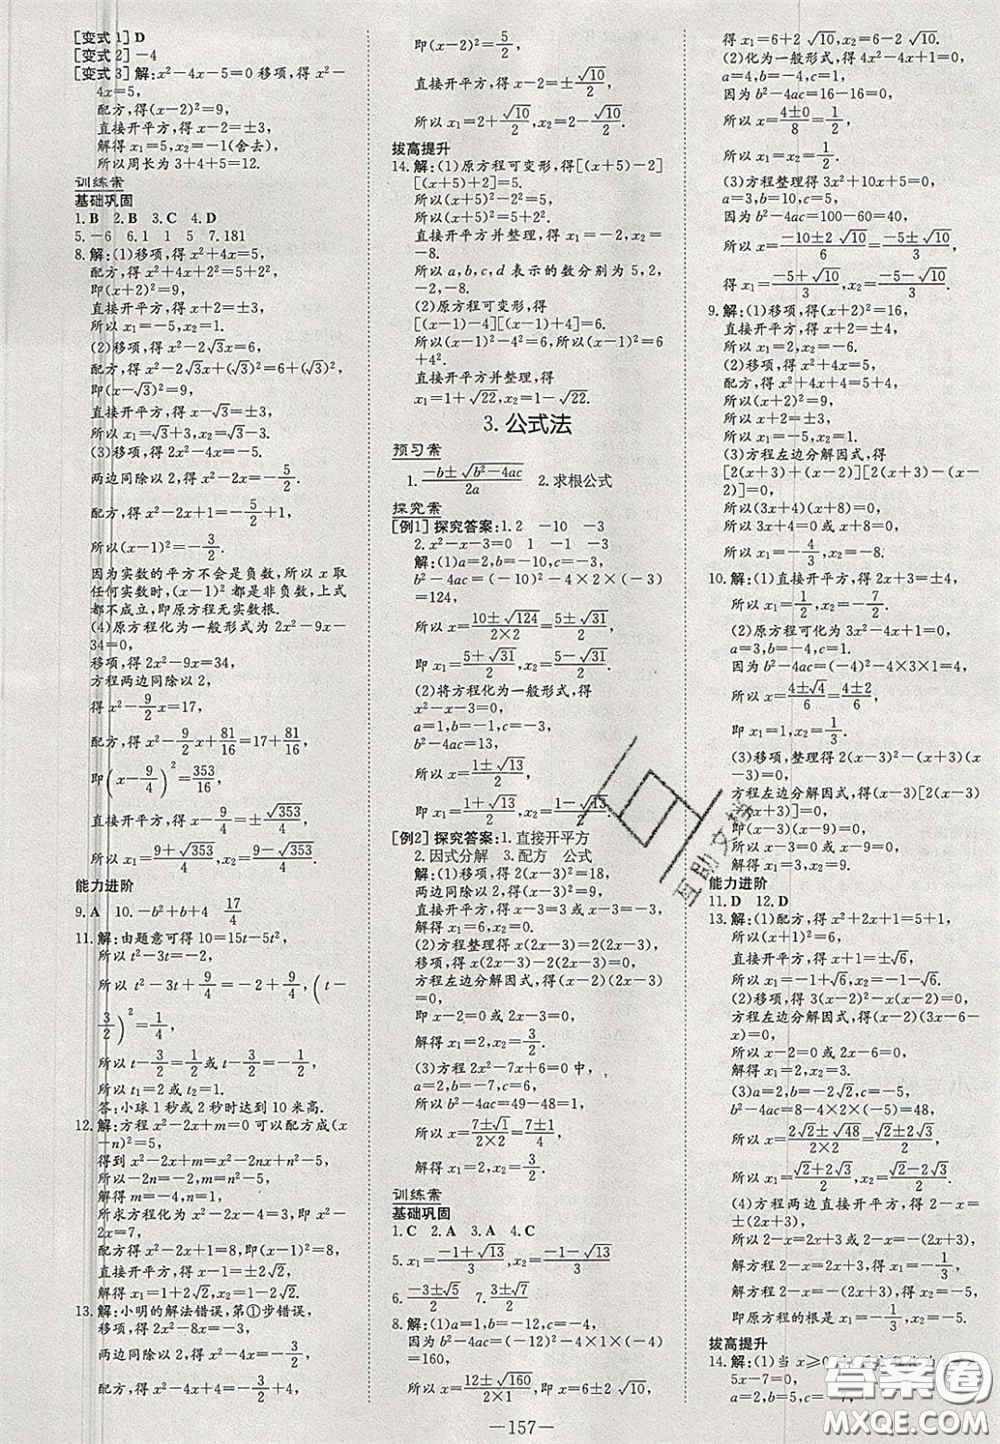 [变式1] D
[变式2] -4
[变式3] 解:x²-4x-5=0移项,得x²-
4x=5,
配方,得(x-2)²=9,
直接开平方,得x-2=±3,
解得x₁=5,x₂=-1(舍去),
所以周长为3+4+5=12.
训练案
基础巩固
1.B 2.B 3.C 4.D
5.-6 6.1 1 5 7.181
8.解:(1)移项,得x²+4x=5,
配方,得x²+4x+2²=5+2²,
即(x+2)²=9,
直接开平方,得x+2=±3,
所以x₁=-5,x₂=1.
(2)移项,得x²-2√3x=6,
配方,得x²-2√3x+(√3)²=6+(√3)²,
即(x-√3)²=9,
直接开平方,得x-√3=±3,
所以x₁=√3+3,x₂=√3-3.
(3)移项,得2x²-4x=-5,
两边同除以2,得x²-2x=-5/2,
配方,得x²-2x+1=-5/2+1,
所以(x-1)²=-3/2.
因为实数的平方不会是负数,所以x取
任何实数时,(x-1)²都是非负数,上式
都不成立,即原方程无实数根.
(4)原方程化为一般形式为2x²-9x-
34=0,
移项,得2x²-9x=34,
方程两边同除以2,
得x²-9/2x=17,
配方,得x²-9/2x+81/16=17+81/16,
即(x-9/4)²=353/16,
直接开平方,得x-9/4=±√353/4,
所以x₁=(9+√353)/4,x₂=(9-√353)/4.
能力进阶
9.A 10.-b²+b+4 17/4
11.解:由题意可得10=15t-5t²,
所以t²-3t=-2,
所以t²-3t+9/4=-2+9/4,(t-
3/2)²=1/4,
所以t-3/2=1/2或t-3/2=-1/2,
所以t₁=2或t₂=1.
答:小球1秒或2秒时达到10米高.
12.解:方程x²-2x+m=0可以配方成(x
-n)²=5,
得到x²-2x+m=x²-2nx+n²-5,
所以-2=-2n,m=n²-5,
解得m=-4,n=1,
所求方程化为x²-2x-4=1+2=3,
配方得x²-2x+1=8,即(x-1)²=8,
直接开平方,得x-1=±2√2,
解得x₁=1+2√2,x₂=1-2√2.
13.解:小明的解法错误,第①步错误,
移项,得2x²-8x=-3,
两边同除以2,得x²-4x=-3/2,
配方,得x²-4x+4=-3/2+4,
即(x-2)²=5/2,
直接开平方,得x-2=±√10/2,
所以x₁=2+√10/2,x₂=2-√10/2.
拔高提升
14.解:(1)原方程可变形,得[(x+5)-2]
[(x+5)+2]=5.
所以(x+5)²-2²=5,
所以(x+5)²=5+2².
直接开平方并整理,得x₁=-2,x₂=
-8.
所以a,b,c,d表示的数分别为5,2,
-2,-8.
(2)原方程可变形,得
[(x-1)-4][(x-1)+4]=6.
所以(x-1)²-4²=6,所以(x-1)²=6
+4².
直接开平方并整理,得
x₁=1+√22,x₂=1-√22.
3.公式法
预习案
1.(-b±√(b²-4ac))/2a 2.求根公式
探究案
[例1] 探究答案:1.2 -10 -3
2.x²-x-3=0 1 -1 -3
解:(1)a=2,b=-10,c=-3,
b²-4ac=(-10)²-4×2×(-3)
=124,
所以x=(10±√124)/(2×2)=(5±√31)/2,
即x₁=(5+√31)/2,x₂=(5-√31)/2.
(2)将方程化为一般形式,得
x²-x-3=0,
a=1,b=-1,c=-3,
b²-4ac=13,
所以x=(1±√13)/2,
即x₁=(1+√13)/2,x₂=(1-√13)/2.
[例2] 探究答案:1.直接开平方
2.因式分解 3.配方 公式
解:(1)移项,得2(x-3)²=18,
两边同除以2,得(x-3)²=9,
直接开平方,得x-3=3或x-3=-3,
解得x₁=6,x₂=0.
(2)方程整理得x(2x-3)=2(2x-3),
移项,得x(2x-3)-2(2x-3)=0,
方程左边分解因式,得(x-2)(2x-3)
=0,
即x-2=0或2x-3=0,
解得x₁=2,x₂=3/2.
(3)方程2x²-7x+6=0中,
a=2,b=-7,c=6,
所以b²-4ac=49-48=1,
所以x=(7±√1)/(2×2)=(7±1)/4,
解得x₁=2,x₂=3/2.
训练案
基础巩固
1.C 2.A 3.A 4.C
5.x₁=(-1+√13)/3,x₂=(-1-√13)/3
6.(-3±√5)/2 7.(3±√7)/2
8.解:(1)a=1,b=-12,c=-4,
因为b²-4ac=(-12)²-4×1×(-4)
=160,
所以x=(12±√160)/(2×1),即x=6±2√10,
得x₁=6+2√10,x₂=6-2√10.
(2)化为一般形式,得4x²-4x+1=0,
a=4,b=-4,c=1,
因为b²-4ac=16-16=0,
所以x=(4±0)/8=1/2,
所以x₁=x₂=1/2.
(3)方程整理得3x²+10x+5=0,
a=3,b=10,c=5,
因为b²-4ac=100-60=40,
所以x=(-10±2√10)/6=(-5±√10)/3,
得x₁=(-5+√10)/3,x₂=(-5-√10)/3.
9.解:(1)移项,得(x+2)²=16,
直接开平方,得x+2=±4,
所以x₁=2,x₂=-6.
(2)移项,得x²-4x=1,
配方,得x²-4x+4=1+4,
即(x-2)²=5,
直接开平方,得x-2=±√5,
所以x₁=2+√5,x₂=2-√5.
(3)方程左边分解因式,得
[2(x+3)+(x-2)][2(x+3)-(x-
2)]=0,
所以(3x+4)(x+8)=0,
所以3x+4=0或x+8=0,
所以x₁=-4/3,x₂=-8.
10.解:(1)直接开平方,得2x+3=±4,
所以x₁=1/2,x₂=-7/2.
(2)原方程可化为3x²-4x+1=0,
a=3,b=-4,c=1,
因为b²-4ac=(-4)²-4×3×1=4,
所以x=(4±√4)/6=(4±2)/6,
即x₁=1,x₂=1/3.
(3)移项,整理得2(x-3)²-(x+3)(x
-3)=0,
方程左边分解因式,得(x-3)[2(x-3)
-(x+3)]=0,
即(x-3)(x-9)=0,
所以x-3=0或x-9=0,
解得x₁=3,x₂=9.
能力进阶
11.D 12.D
13.解:(1)配方,得x²+2x+1=5+1,
即(x+1)²=6,
直接开平方,得x+1=±√6,
所以x₁=-1+√6,x₂=-1-√6.
(2)移项,得3(x-2)²-x(x-2)=0,
方程左边分解因式,得(x-2)(3x-6-
x)=0,
所以x-2=0或2x-6=0,
解得x₁=2,x₂=3.
(3)a=2,b=-2√2,c=-5,
b²-4ac=8-4×2×(-5)=48,
所以x=(2√2±√48)/(2×2)=(√2±2√3)/2,
所以x₁=(√2+2√3)/2,x₂=(√2-2√3)/2.
(4)方程两边直接开平方,得2-x=
±(2x+3),
所以2-x=2x+3或2-x=-2x-3,
解方程2-x=2x+3,得x=-1/3,
解方程2-x=-2x-3,得x=-5,
即原方程的根是x₁=-1/3,
拔高提升
14.解:(1)当x≥0
5x-7=0,
a=2,b=5,c=-7,
—157—
互助文档
答案圈
MXQE.COM